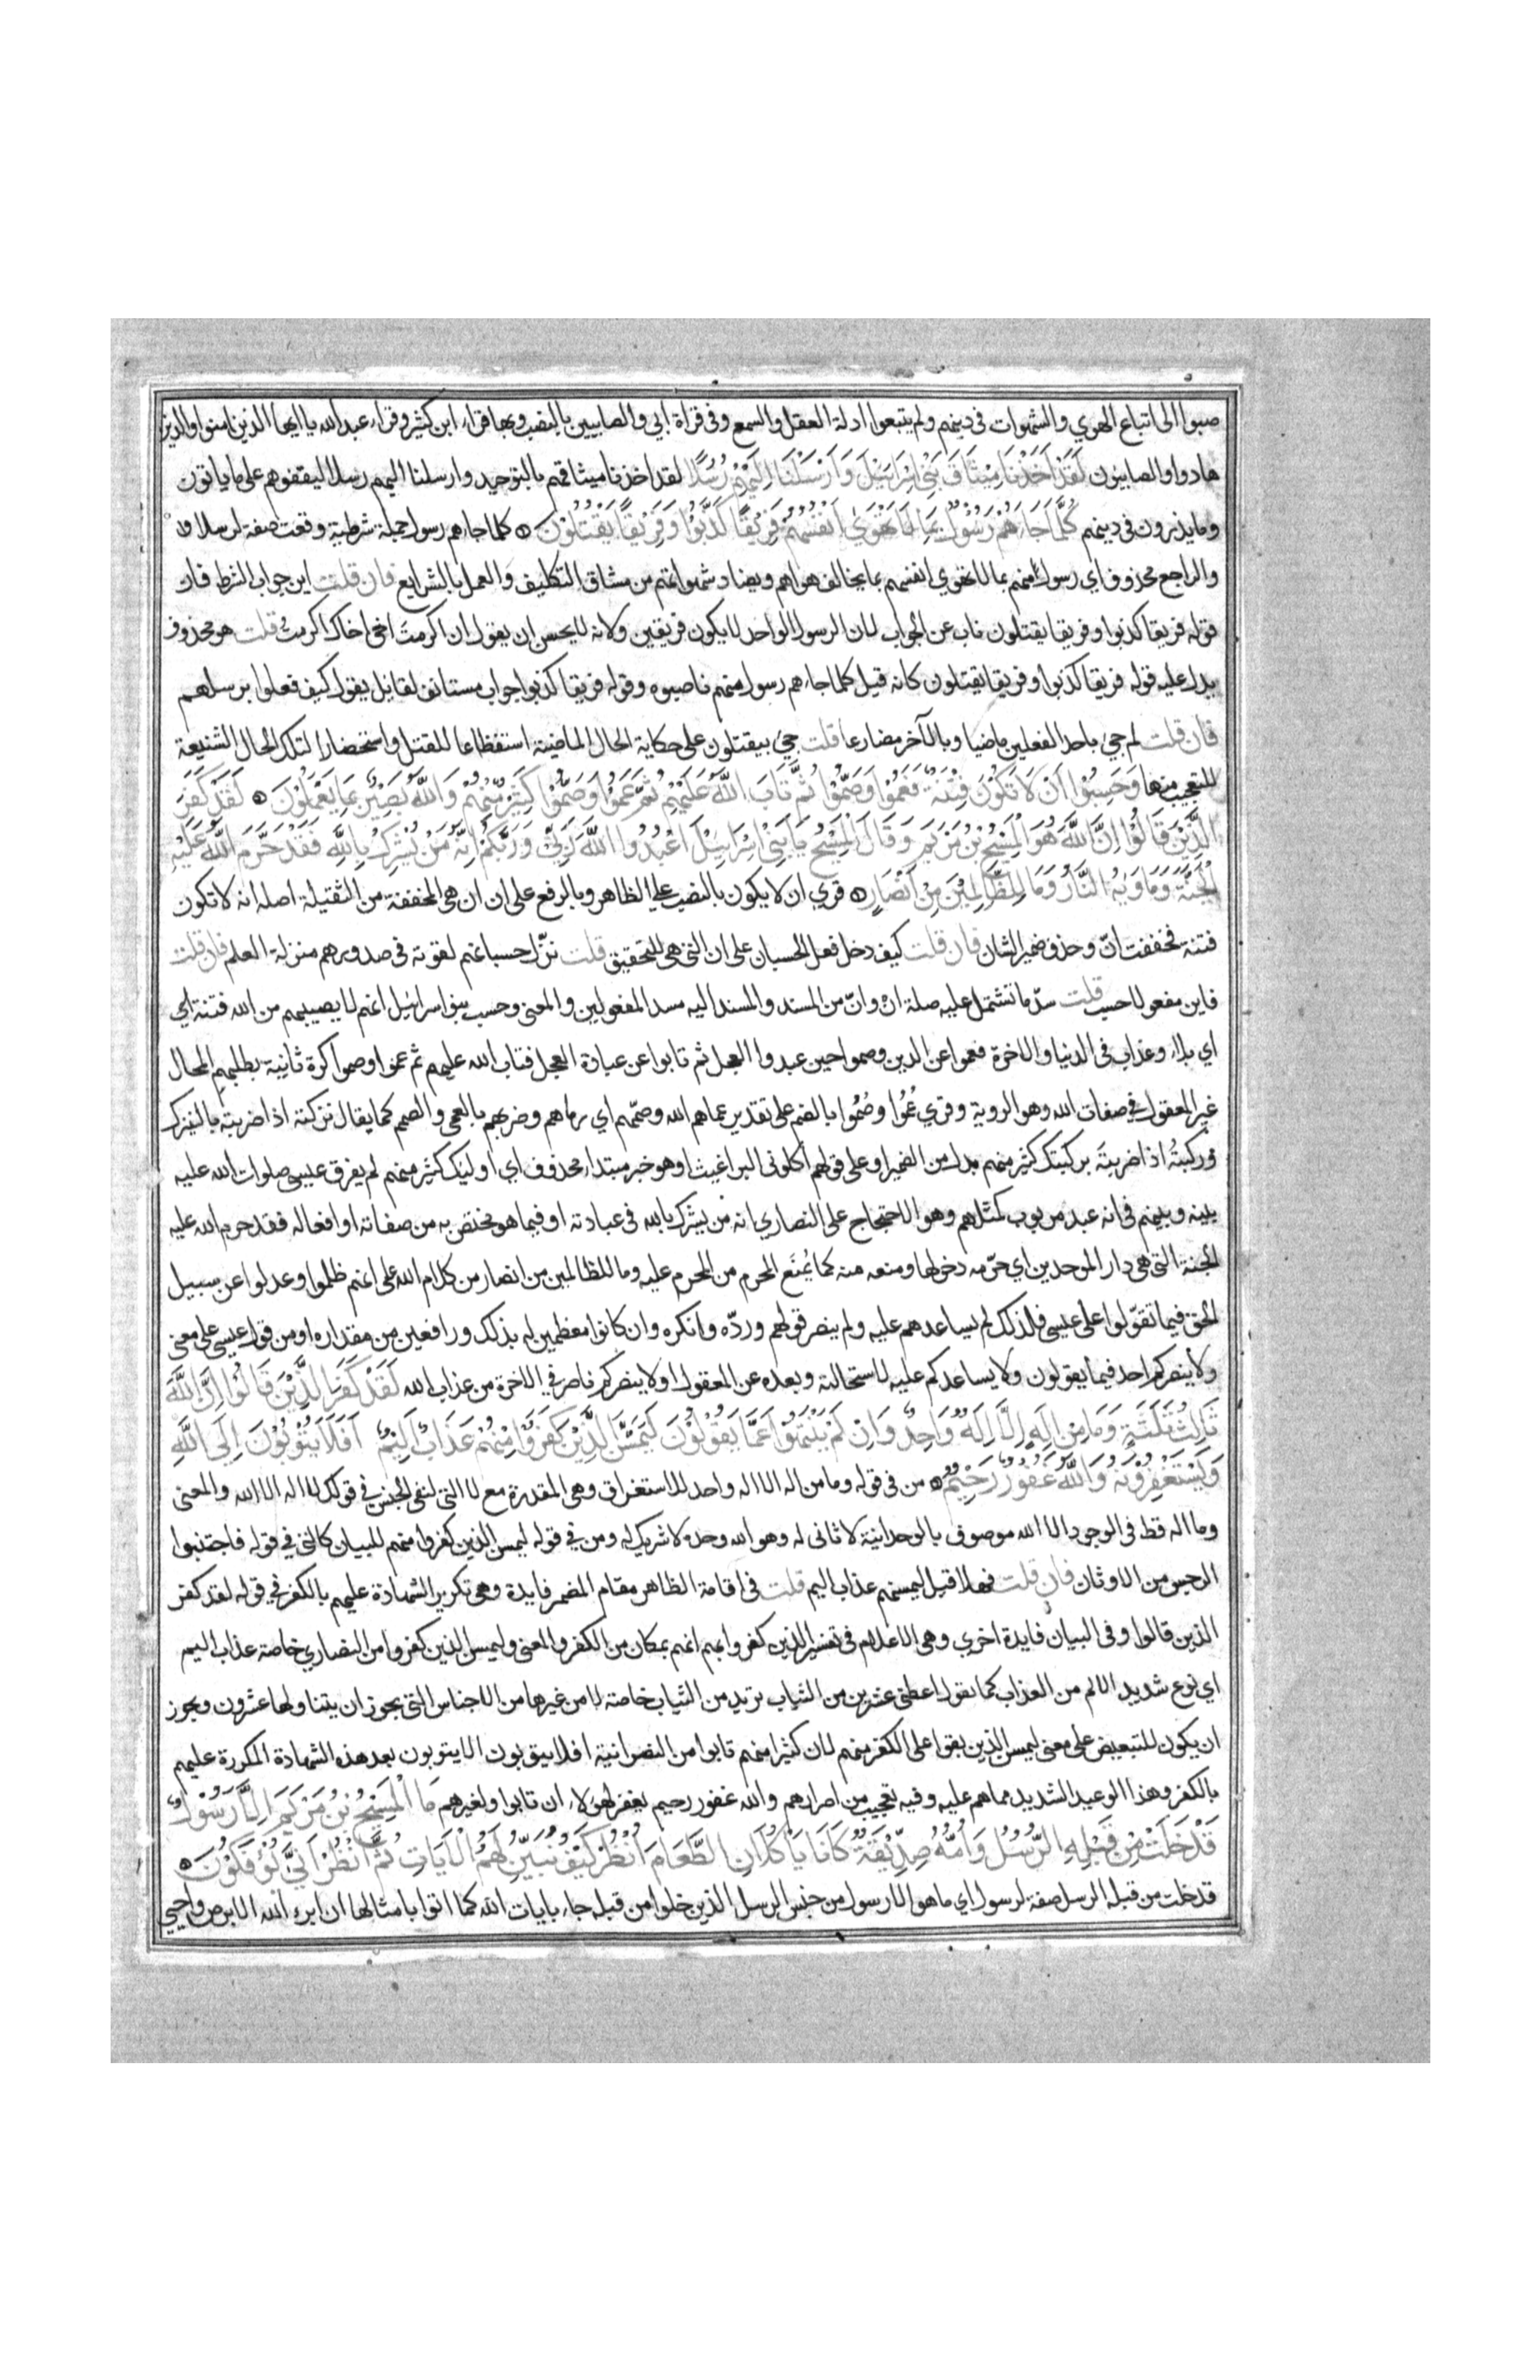 صبوا الى اتباع الهوي والشهوات في دينهم ولم يتبعوا ادلة العقل والسمع وفى قراة ابي والصابيين بالنصب وبها قراء ابن كثير وقراء عبد الله يا ايها الذين امنوا والذين
هادوا والصابئون لَقَدْ اَخَذْنَا مِيْثَاقَ بَنِيْ اِسْرَائِيْلَ وَاَرْسَلْنَا اِلَيْهِمْ رُسُلًا لقد اخذنا ميثاقهم بالتوحيد وارسلنا اليهم رسلا ليقفوهم على ما ياتون
وما يذرون في دينهم كُلَّمَا جَاءَهُمْ رَسُوْلٌ بِمَا لَا تَهْوَيٰ اَنْفُسُهُمْ فَرِيْقًا كَذَّبُوْا وَفَرِيْقًا يَقْتُلُوْنَ كلما جاءهم رسول جملة شرطية وقعت صفة لرسلا
والراجع محذوف اي رسول منهم بما لا تهوي انفسهم بما يخالف هواهم ويضاد شهواتهم من مشاق التكليف والعمل بالشرايع فان قلت اين جواب الشرط فان
قوله فريقا كذبوا وفريقا يقتلون ناب عن الجواب لان الرسول الواحد لا يكون فريقين ولانه لا يحسن ان يقول ان اكرمتَ اخي اخاك اكرمتُ قلت هو محذوف
يدل عليه قوله فريقا كذبوا وفريقا يقتلون كانه قيل كلما جاءهم رسول منهم ناصبوه وقوله فريقا كذبوا جواب مستانف لقايل يقول كيف فعلوا برسلهم
فان قلت لم جيئ باحد الفعلين ماضيا وبالآخر مضارعا قلت جيئ بيقتلون على حكاية الحال الماضية استفظاعا للقتل واستحضارا لتلك الحال الشنيعة
للتعجيب منها وَحَسِبُوْا اَنْ لَا تَكُوْنَ فِتْنَةٌ فَعَمُوْا وَصَمُّوْا ثُمَّ تَابَ اللّٰهُ عَلَيْهِمْ ثُمَّ عَمُوْا وَصَمُّوْا كَثِيْرٌ مِنْهُمْ وَاللّٰهُ بَصِيْرٌ بِمَا يَعْمَلُوْنَ لَقَدْ كَفَرَ
الَّذِيْنَ قَالُوْا اِنَّ اللّٰهَ هُوَ الْمَسِيْحُ بْنُ مَرْيَمَ وَقَالَ الْمَسِيْحُ يَا بَنِيْ اِسْرَايِيْلَ اعْبُدُوا اللّٰهَ رَبِّيْ وَرَبَّكُمْ اِنَّهُ مَنْ يُشْرِكْ بِاللّٰهِ فَقَدْ حَرَّمَ اللّٰهُ عَلَيْهِ
الْجَنَّةَ وَمَاوٰيهُ النَّارُ وَمَا لِلظَّالِمِيْنَ مِنْ اَنْصَارٍ قري ان لا يكون بالنصب على الظاهر وبالرفع على ان ان هى المخففة من الثقيلة اصله انه لا تكون
فتنة فخففت انّ وحذف ضمير الشان فان قلت كيف دخل فعل الحسبان على ان التى هى للتحقيق قلت نزّل حسبانهم لقوته في صدورهم منزلة العلم فان قلت
فاين مفعولا حسب قلت سدّ ما تشتمل عليه صلة ان وانّ من المسند والمسند اليه مسد المفعولين والمعنى وحسب بنوا اسرائيل انهم لا يصيبهم من الله فتنة اي
اي بلاء وعذاب في الدنيا والاخرة فعموا عن الدين وصموا حين عبدوا العجل ثم تابوا عن عبادة العجل فتاب الله عليهم ثم عموا وصموا كرة ثانية بطلبهم المحال
غير المعقول في صفات الله وهو الروية وقري عُمُوا وصُمُّوا بالضم على تقدير عماهم الله وصمّهم اي رماهم وضربهم بالعمي والصمم كما يقال نزكته اذا ضربته بالنيزك
وركبتُه اذا ضربتَه بركبتك كثير منهم بدل من الضمير او على قولهم اكلونى البراغيث او هو خبر مبتداء محذوف اي اوليك كثير منهم لم يفرق عيسى صلوات الله عليه
بينه وبينهم فى انه عبد مربوب كمثلهم وهو الاحتجاج على النصاري انه من يشرك بالله في عبادته او فيما هو مختص به من صفاته او افعاله فقد حرم الله عليه
الجنة التى هى دار الموحدين اي حرّمه دخولها ومنعه منه كما يُمنَع المحرم من المحرم عليه وما للظالمين من انصار من كلام الله على انهم ظلموا وعدلوا عن سبيل
الحق فيما تقوّلوا على عيسى فلذلك لم يساعدهم عليه ولم ينصر قولهم وردّه وانكره وان كانوا معظمين له بذلك ورافعين من مقداره او من قول عيسى على معنى
ولا ينصركم احد فيما يقولون ولا يساعدكم عليه لاستحالته وبعده عن المعقول او لا ينصركم ناصر في الاخرة من عذاب الله لَقَدْ كَفَرَ الَّذِيْنَ قَالُوْا اِنَّ اللّٰهَ
ثَالِثُ ثَلٰثَةٍ وَمَا مِنْ اِلَهٍ اِلَّا اِلَهٌ وَاحِدٌ وَاِنْ لَمْ يَنْتَهُوْا عَمَّا يَقُوْلُوْنَ لَيَمَسَّنَّ الَّذِيْنَ كَفَرُوْا مِنْهُمْ عَذَابٌ اَلِيْمٌ اَفَلَا يَتُوْبُوْنَ اِلَى اللّٰهِ
وَيَسْتَغْفِرُوْنَهُ وَاللّٰهُ غَفُوْرٌ رَحِيْمٌ من فى قوله وما من اله الا اله واحد للاستغراق وهى المقدرة مع لا التى لنفى الجنس في قولك لا اله الا الله والمعنى
وما اله قط في الوجود الا الله موصوف بالوحدانية لا ثانى له وهو الله وحده لا شريك له ومن في قوله ليمسن الذين كفروا منهم للبيان كالتى في قوله فاجتنبوا
الرجس من الاوثان فان قلت فهلا قيل ليمسنهم عذاب اليم قلت في اقامة الظاهر مقام المضمر فايدة وهى تكرير الشهادة عليهم بالكفر في قوله لقد كفر
الذين قالوا وفى البيان فايدة اخري وهى الاعلام في تفسير الذين كفروا منهم انهم بمكان من الكفر والمعنى وليمسن الذين كفروا من النصاري خاصة عذاب اليم
اي نوع شديد الالم من العذاب كما تقول اعطنى عشرين من الثياب تريد من الثياب خاصة لا من غيرها من الاجناس التى يجوز ان يتناولها عشرون ويجوز
ان يكون للتبعيض على معنى ليمسن الذين بقوا على الكفر منهم لان كثيرا منهم تابوا من النصرانية افلا يتوبون الا يتوبون بعد هذه الشهادة المكررة عليهم
بالكفر وهذا الوعيد الشديد مما هم عليه وفيه تعجيب من اصرارهم والله غفور رحيم يغفر لهؤلاء ان تابوا ولغيرهم مَا الْمَسِيْحُ بْنُ مَرْيَمَ اِلَّا رَسُوْلٌ
قَدْ خَلَتْ مِنْ قَبْلِهِ الرُّسُلُ وَاُمُّهُ صِدِّيْقَةٌ كَانَا يَاْكُلَانِ الطَّعَامَ اُنْظُرْ كَيْفَ نُبَيِّنُ لَهُمُ الْاٰيَاتِ ثُمَّ انْظُرْ اَنّٰي يُؤْفَكُوْنَ
قد خلت من قبله الرسل صفة لرسول اي ما هو الا رسول من جنس الرسل الذين خلوا من قبله جاء بايات الله كما اتوا بامثالها ان ابرء الله الابرص واحيي